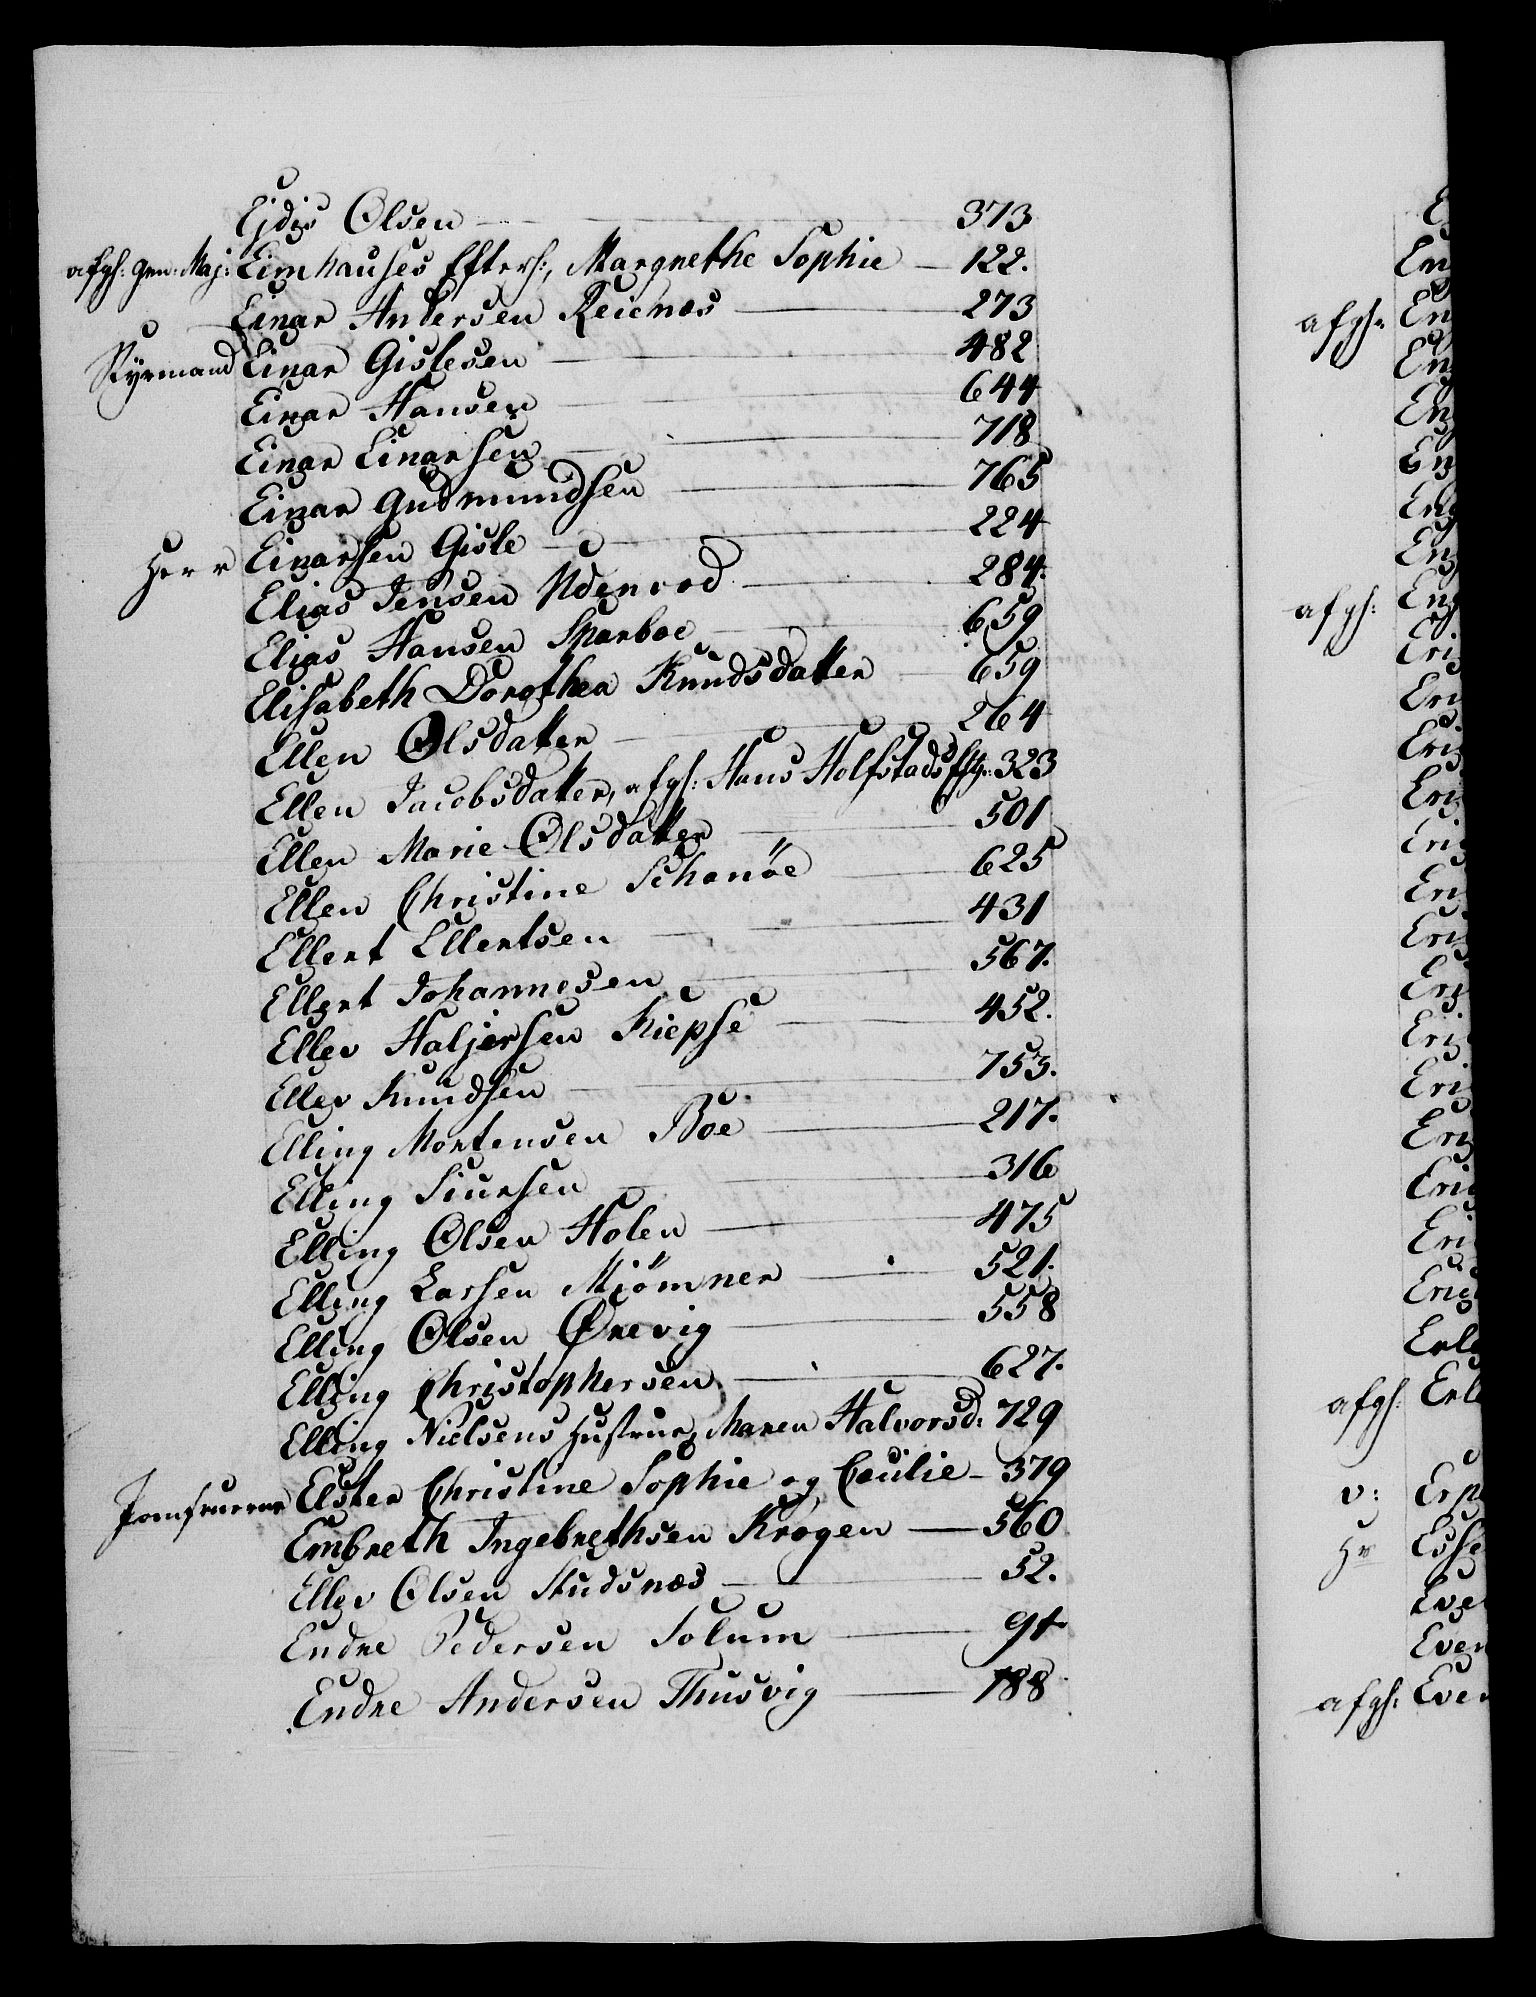 Ejdis Olsen 373
afgh: Gen: Maj: Eimhauses Efterh:, Margrethe Sophie 122.
Einar Andersen Reienæs 273
Styrmand Einar Gislesen 482
Einar Hansen 644
Einar Einarsen 718
Einar Gudmundsen 765
Herr Einarsen Gisle 224
Elias Jensen Udenrod 284.
Elias Hansen Sparboe 659
Elisabeth Dorothea Knudsdatter 659
Ellen Olsdatter 264
Ellen Jacobsdatter, afgh: Hans Holfstads 323
Ellen Marie Olsdatter 501
Ellen Christine Schanöe 625
Ellert Ellertsen 431
Ellert Johannesen 567.
Ellev Haljersen Kiepse 452.
Ellev Knudsen 753.
Elling Mortensen Böe 217.
Elling Siursen 316
Elling Olsen Holen 475
Elling Larsen Mjömner 521.
Elling Olsen Ørevig 558
Elling Christophersen 627.
Elling Nielsens Hustrue, Maren Halvorsd: 729
Jomfruerne Elster Christine Sophie og Cecilie 379
Embreth Ingebrethsen Krogen 560
Ellev Olsen Studsnæs 52.
Endre Pedersen Solum 94
Endre Andersen Thusvig 188
afgh:
afgh:
afgh:
v:
Hr
afgh: